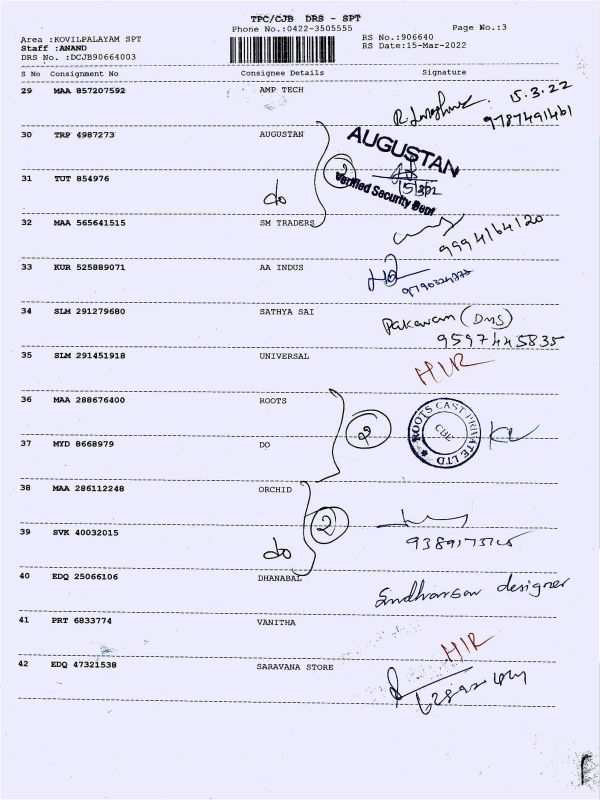 TPC/CJB DRS - SPT
Phone No.:0422-3505555
Page No.:3
Area :KOVILPALAYAM SPT
RS No.:906640
Staff :ANAND
RS Date:15-Mar-2022
DRS No. :DCJB90664003
S No Consignment No Consignee Details Signature
29 MAA 857207592 AMP TECH
15.3.22
9787491461
30 TRP 4987273 AUGUSTAN
AUGUSTAN
Verified Security Dept
31 TUT 854976 do
2
32 MAA 565641515 SM TRADERS
9994164120
33 KUR 525889071 AA INDUS
34 SLM 291279680 SATHYA SAI
9597445835
35 SLM 291451918 UNIVERSAL
36 MAA 288676400 ROOTS
2
ROOTS CAST PRIVATE LTD
CBE
37 MYD 8668979 DO
38 MAA 286112248 ORCHID
2
39 SVK 40032015 do
40 EDQ 25066106 DHANABAL
designer
41 PRT 6833774 VANITHA
42 EDQ 47321538 SARAVANA STORE